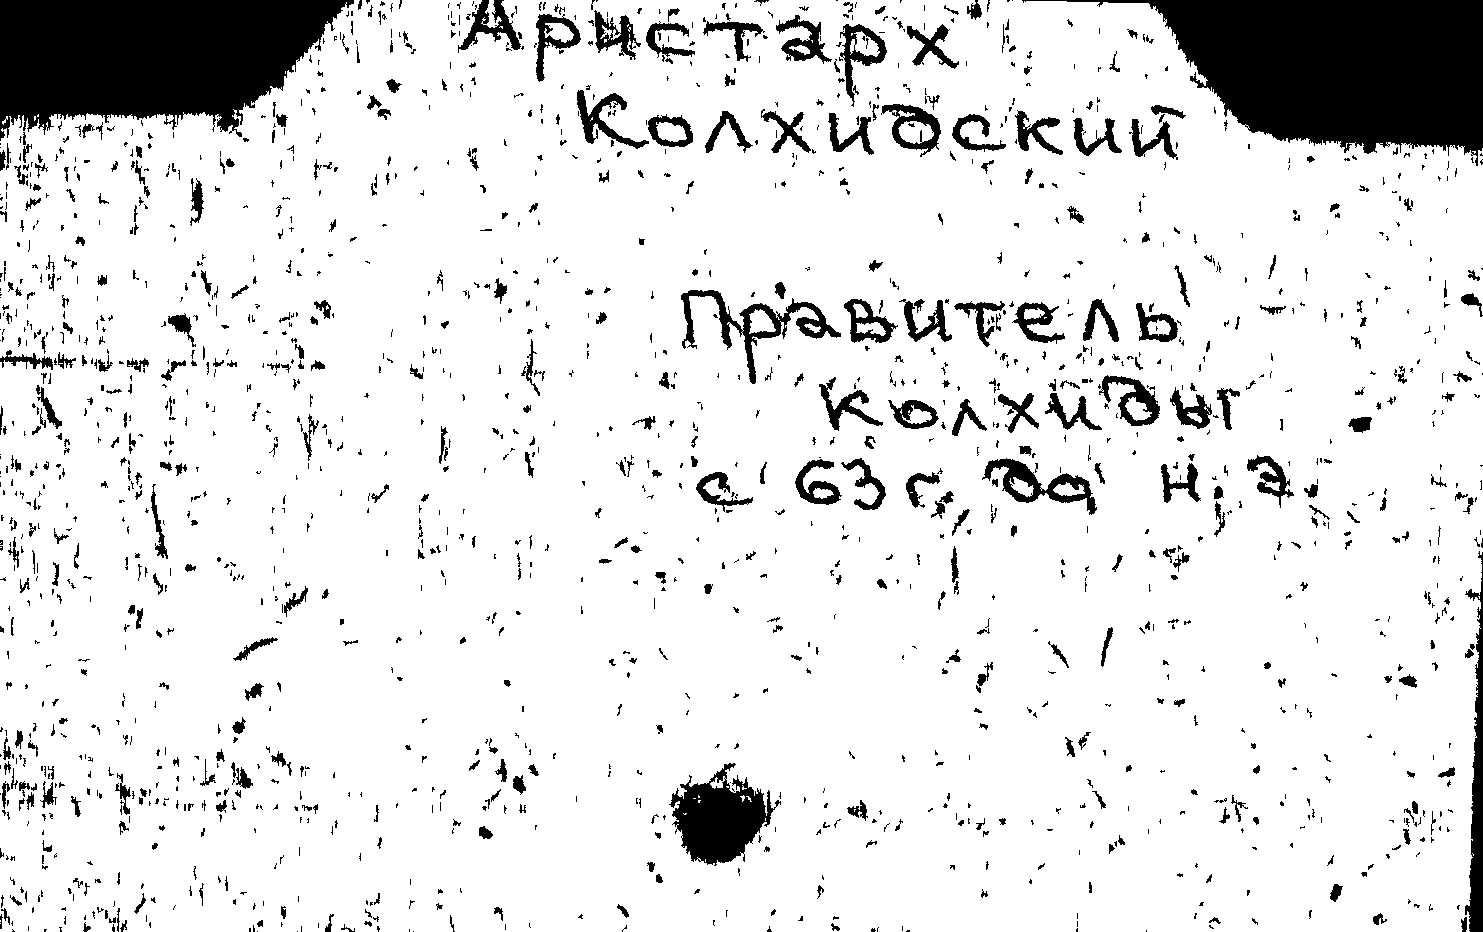 Аристарх
Колхидский
Правитель
Колхиды
с 63 г. до н.э.